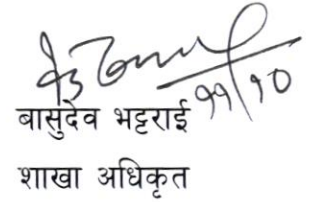 ११/१०
बासुदेव भट्टराई
शाखा अधिकृत